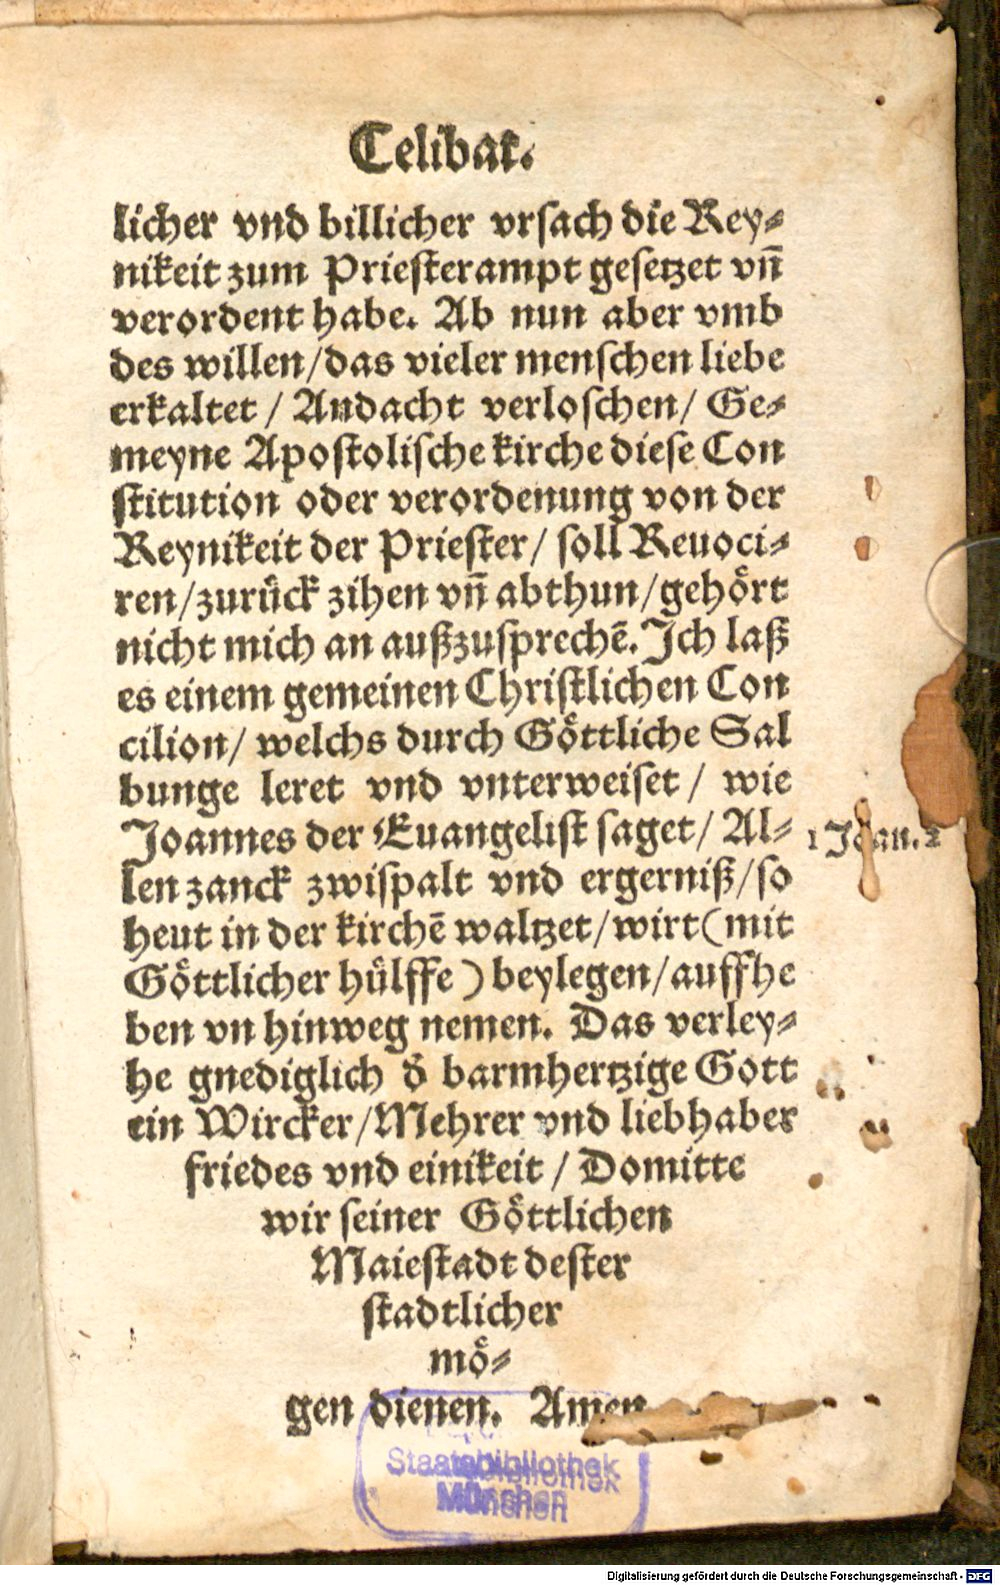 Celibat.
licher vnd billicher vrſach die Rey⸗
nikeit zum Prieſterampt geſetzet vn̄
verordent habe. Ab nun aber vmb
des willen/das vieler menſchen liebe
erkaltet / Andacht verloſchen/ Ge⸗
meyne Apoſtoliſche kirche dieſe Con
ſtitution oder verordenung von der
Reynikeit der Prieſter/ ſoll Reuoci⸗
ren/zurück zihen vn̄ abthun/gehört
nicht mich an außzuſprechē. Ich laß
es einem gemeinen Chriſtlichen Con
cilion/ welchs durch Göttliche Sal
bunge leret vnd vnterweiſet / wie
Joannes der Euangeliſt ſaget/ Al⸗
1 Joan. 2
len zanck zwiſpalt vnd ergerniß/ſo
heut in der kirchē waltzet/wirt(mit
Göttlicher hülffe ) beylegen/auffhe
ben vn hinweg nemen. Das verley⸗
he gnediglich d̄ barmhertzige Gott
ein Wircker/Mehrer vnd liebhaber
friedes vnd einikeit / Domitte
wir ſeiner Göttlichen
Maieſtadt deſter
ſtadtlicher
mö⸗
gen dienen. Amen
Staatsbibliothek
München
Digitalisierung gefördert durch die Deutsche Forschungsgemeinschaft - DFG